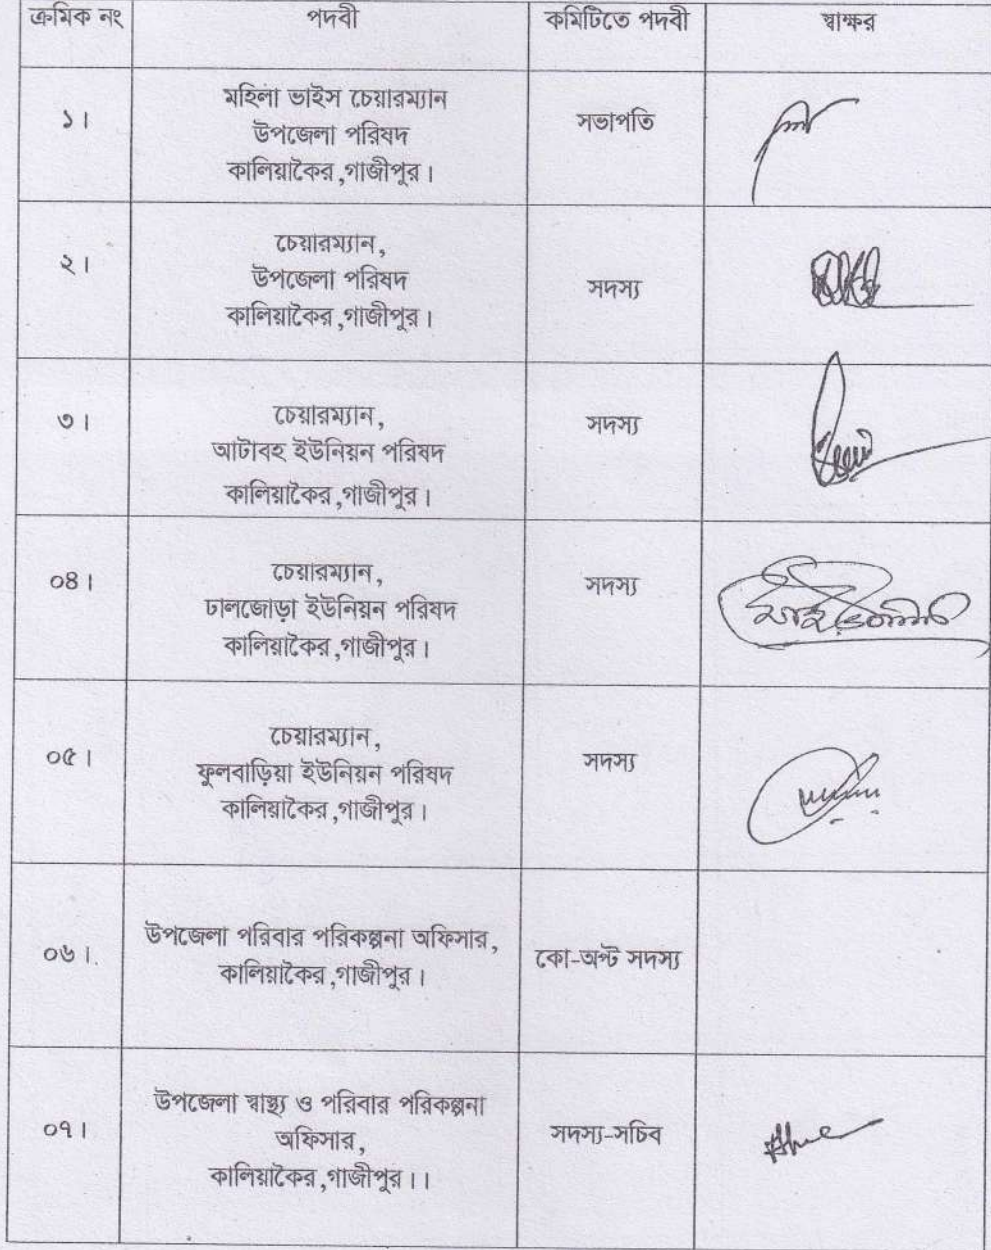 ক্রমিক নং পদবী কমিটিতে পদবী স্বাক্ষর
১। মহিলা ভাইস চেয়ারম্যান
উপজেলা পরিষদ
কালিয়াকৈর,গাজীপুর।
সভাপতি
২। চেয়ারম্যান,
উপজেলা পরিষদ
কালিয়াকৈর,গাজীপুর।
সদস্য
৩। চেয়ারম্যান,
আটাবহ ইউনিয়ন পরিষদ
কালিয়াকৈর,গাজীপুর।
সদস্য
০৪। চেয়ারম্যান,
ঢালজোড়া ইউনিয়ন পরিষদ
কালিয়াকৈর,গাজীপুর।
সদস্য
০৫। চেয়ারম্যান,
ফুলবাড়িয়া ইউনিয়ন পরিষদ
কালিয়াকৈর,গাজীপুর।
সদস্য
০৬। উপজেলা পরিবার পরিকল্পনা অফিসার,
কালিয়াকৈর,গাজীপুর।
কো-অপ্ট সদস্য
০৭। উপজেলা স্বাস্থ্য ও পরিবার পরিকল্পনা
অফিসার,
কালিয়াকৈর,গাজীপুর।।
সদস্য-সচিব